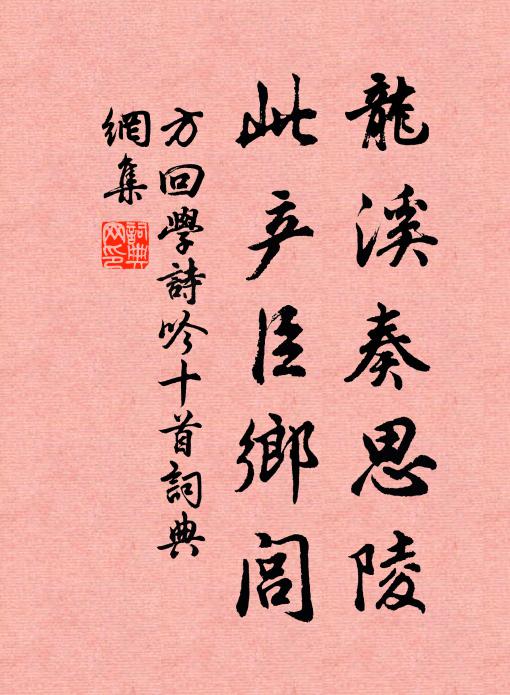 龍溪奏思陵
此产臣鄉閭
方回學詩吟十首詞典
網集
詞典網印